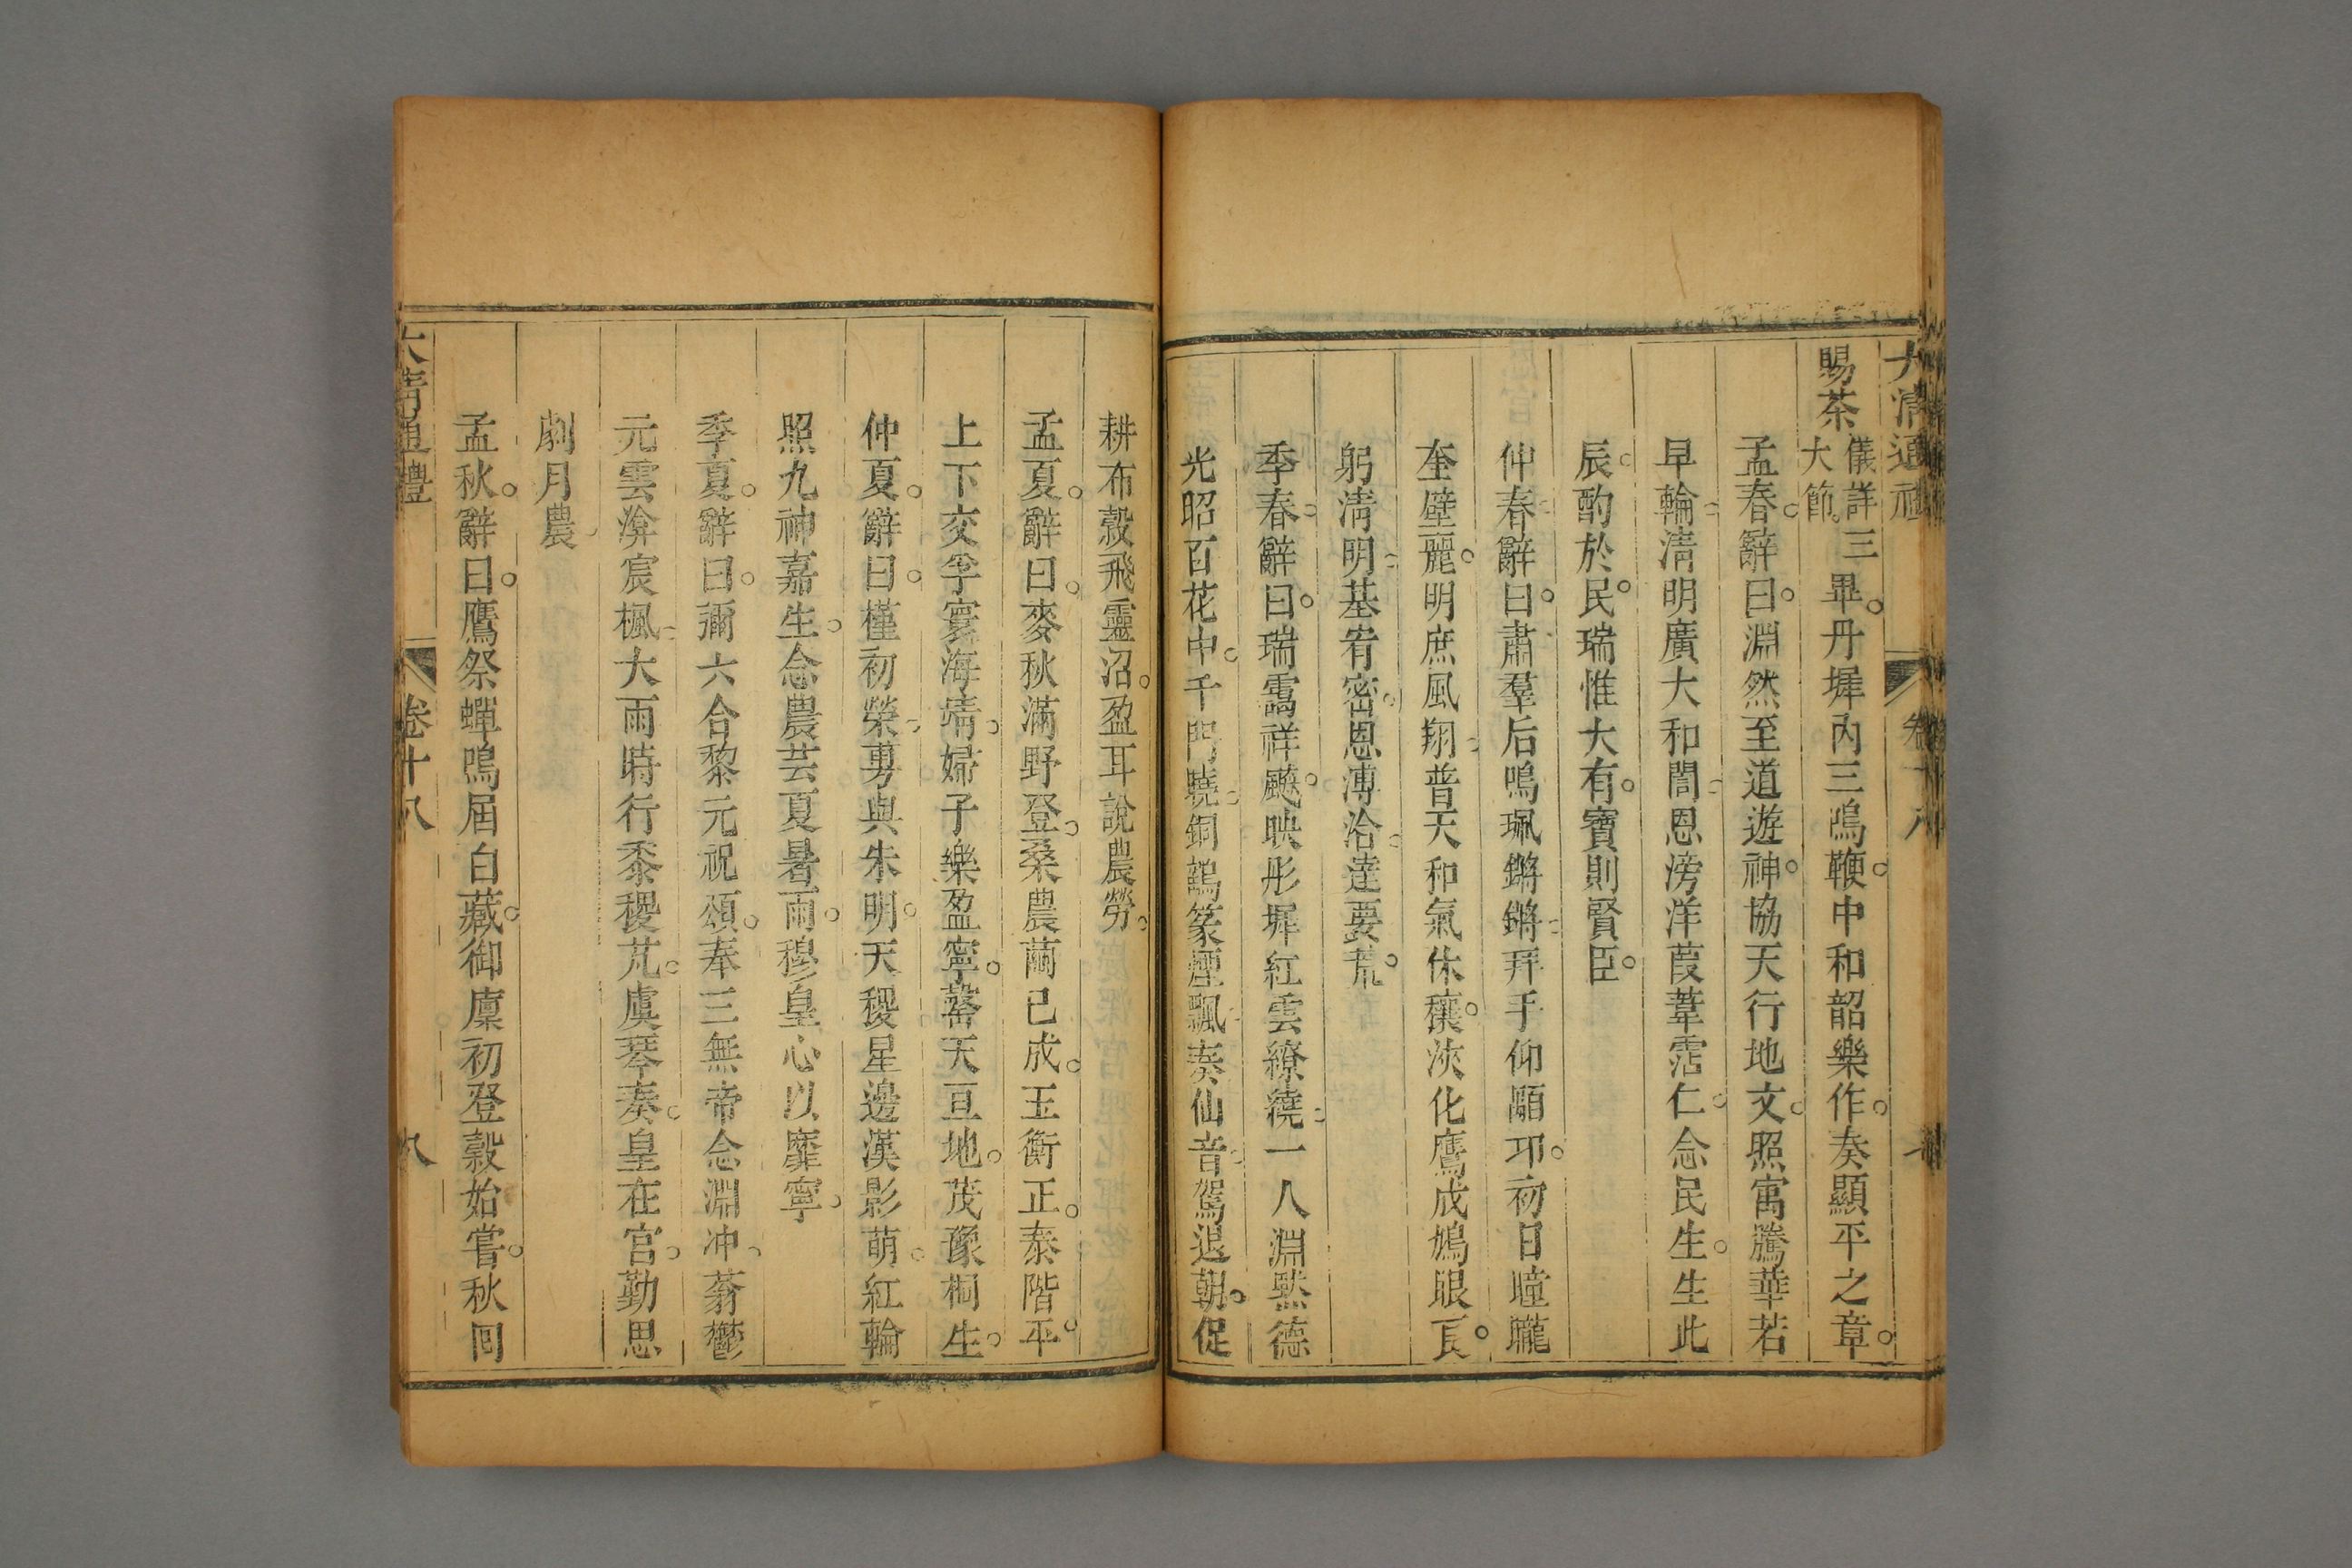 大清通禮 卷十八
賜茶儀詳三大節。畢。丹墀內三鳴鞭。中和韶樂作。奏顯平之章。
孟春。辭曰。淵然至道遊神。協天行地文。照寓騰華若
早輪。淸明廣大和誾。恩滂洋葭葦霑仁。念民生。生此
辰。酌於民。瑞惟大有。寶則賢臣。
仲春。辭曰。肅羣后鳴珮鏘鏘。拜手仰顒卬。初日曈曨
奎壁麗。明庶風翔。普天和氣休穰。浹化鷹成鳩眼良。
躬淸明。基宥密。恩溥洽。達要荒。
季春。辭曰。瑞靄祥飈。映彤墀紅雲繚繞。一人淵默德
光昭百花中。千門曉。銅鶴篆煙飄。奏仙音。駕退朝。促
耕布穀飛靈沼。盈耳說農勞。
孟夏。辭曰。麥秋滿野登。桑農繭已成。玉衡正。泰階平。
上下交孚寰海靖。婦子樂盈寧。罄天亘地。茂豫桐生。
仲夏。辭曰。槿初榮。蕚與朱明。天稷星邊漢影萌。紅輪
照九神嘉生。念農芸夏暑雨。穆皇心以靡寧。
季夏。辭曰。彌六合黎元祝頌。奉三無帝念淵冲。蓊鬱
元雲滃宸楓。大雨時行黍稷芃。虞琴奏。皇在宮。勤思
劇月農。
孟秋。辭曰。鷹祭蟬鳴屆白藏。御廩初登穀始嘗。秋囘
大清通禮 卷十八 九